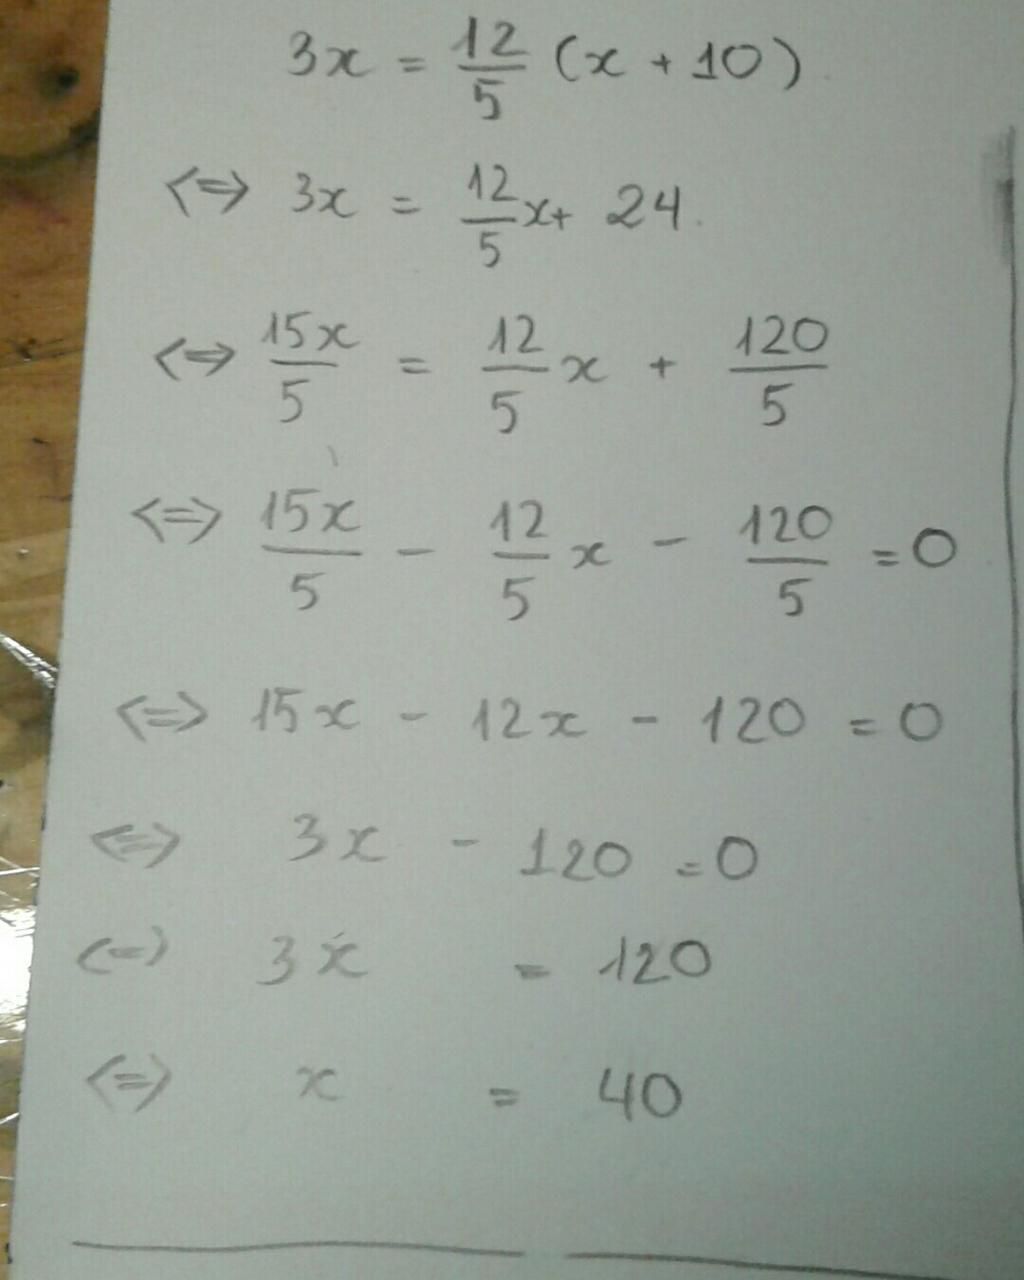 3x = 12/5 (x + 10)
<=> 3x = 12/5 x + 24.
<=> 15x/5 = 12/5 x + 120/5
<=> 15x/5 - 12/5 x - 120/5 = 0
<=> 15x - 12x - 120 = 0
<=> 3x - 120 = 0
<=> 3x = 120
<=> x = 40